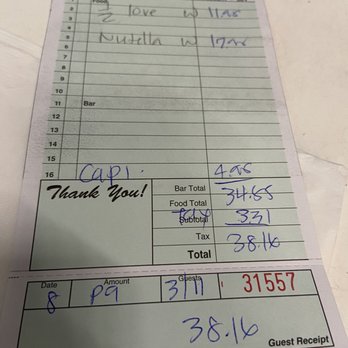 Food
2
3 1/2 love w 11.95
4
5 Nutella w 17.95
6
7
8
9
10
11 Bar
12
13
14
15
16 Capi. 4.95
Thank You!
Bar Total 34.85
Food Total
Tax Subtotal 3.31
Tax 38.16
Total
Date Amount Guests
8 P9 3/11 31557
38.16
Guest Receipt